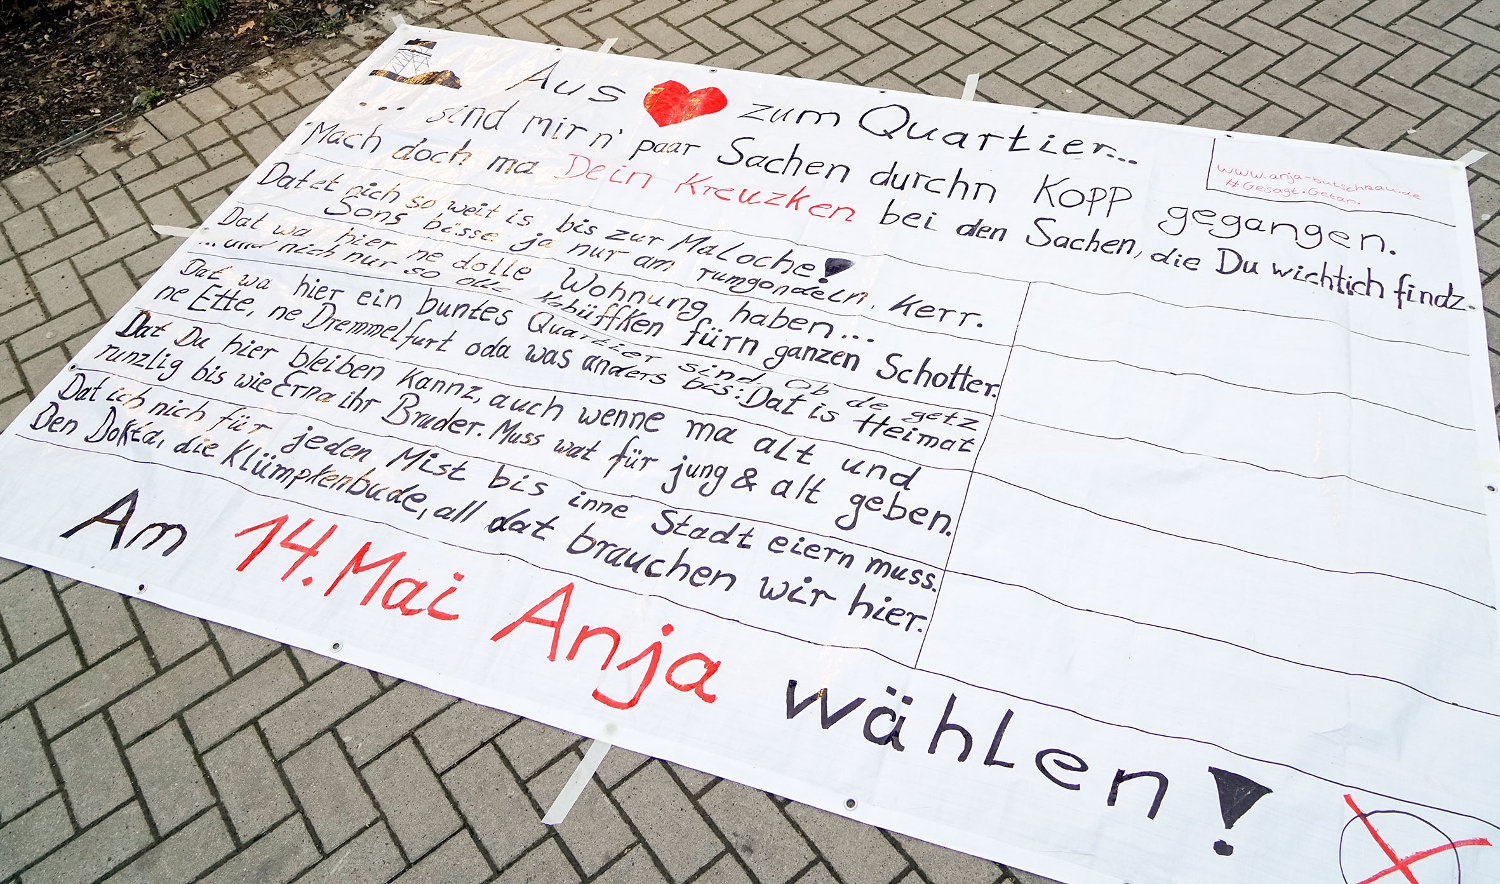 Aus zum Quartier...
... sind mir n' paar Sachen durchn KOPP gegangen.
www.anja-butschkau.de
#Gesagt.Getan.
Mach doch ma Dein Kreuzken bei den Sachen, die Du wichtich findz.
Dat et nich so weit is, bis zur Maloche!
Sons bisse ja nur am rumgondeln, Kerr.
Dat wa hier ne dolle Wohnung haben...
...und nich nur so olle Kabüffken fürn ganzen Schotter.
Dat wa hier ein buntes Quartier sind, ob de getz
ne Ette, ne Dremmelfurt oda was anders bis: Dat is Heimat
Dat Du hier bleiben kannz, auch wenne ma alt und
runzlig bis wie Erna ihr Bruder. Muss wat für jung & alt geben.
Dat ich nich für jeden Mist bis inne Stadt eiern muss.
Den Dokta, die Klümpkenbude, all dat brauchen wir hier.
Am 14. Mai Anja wählen!